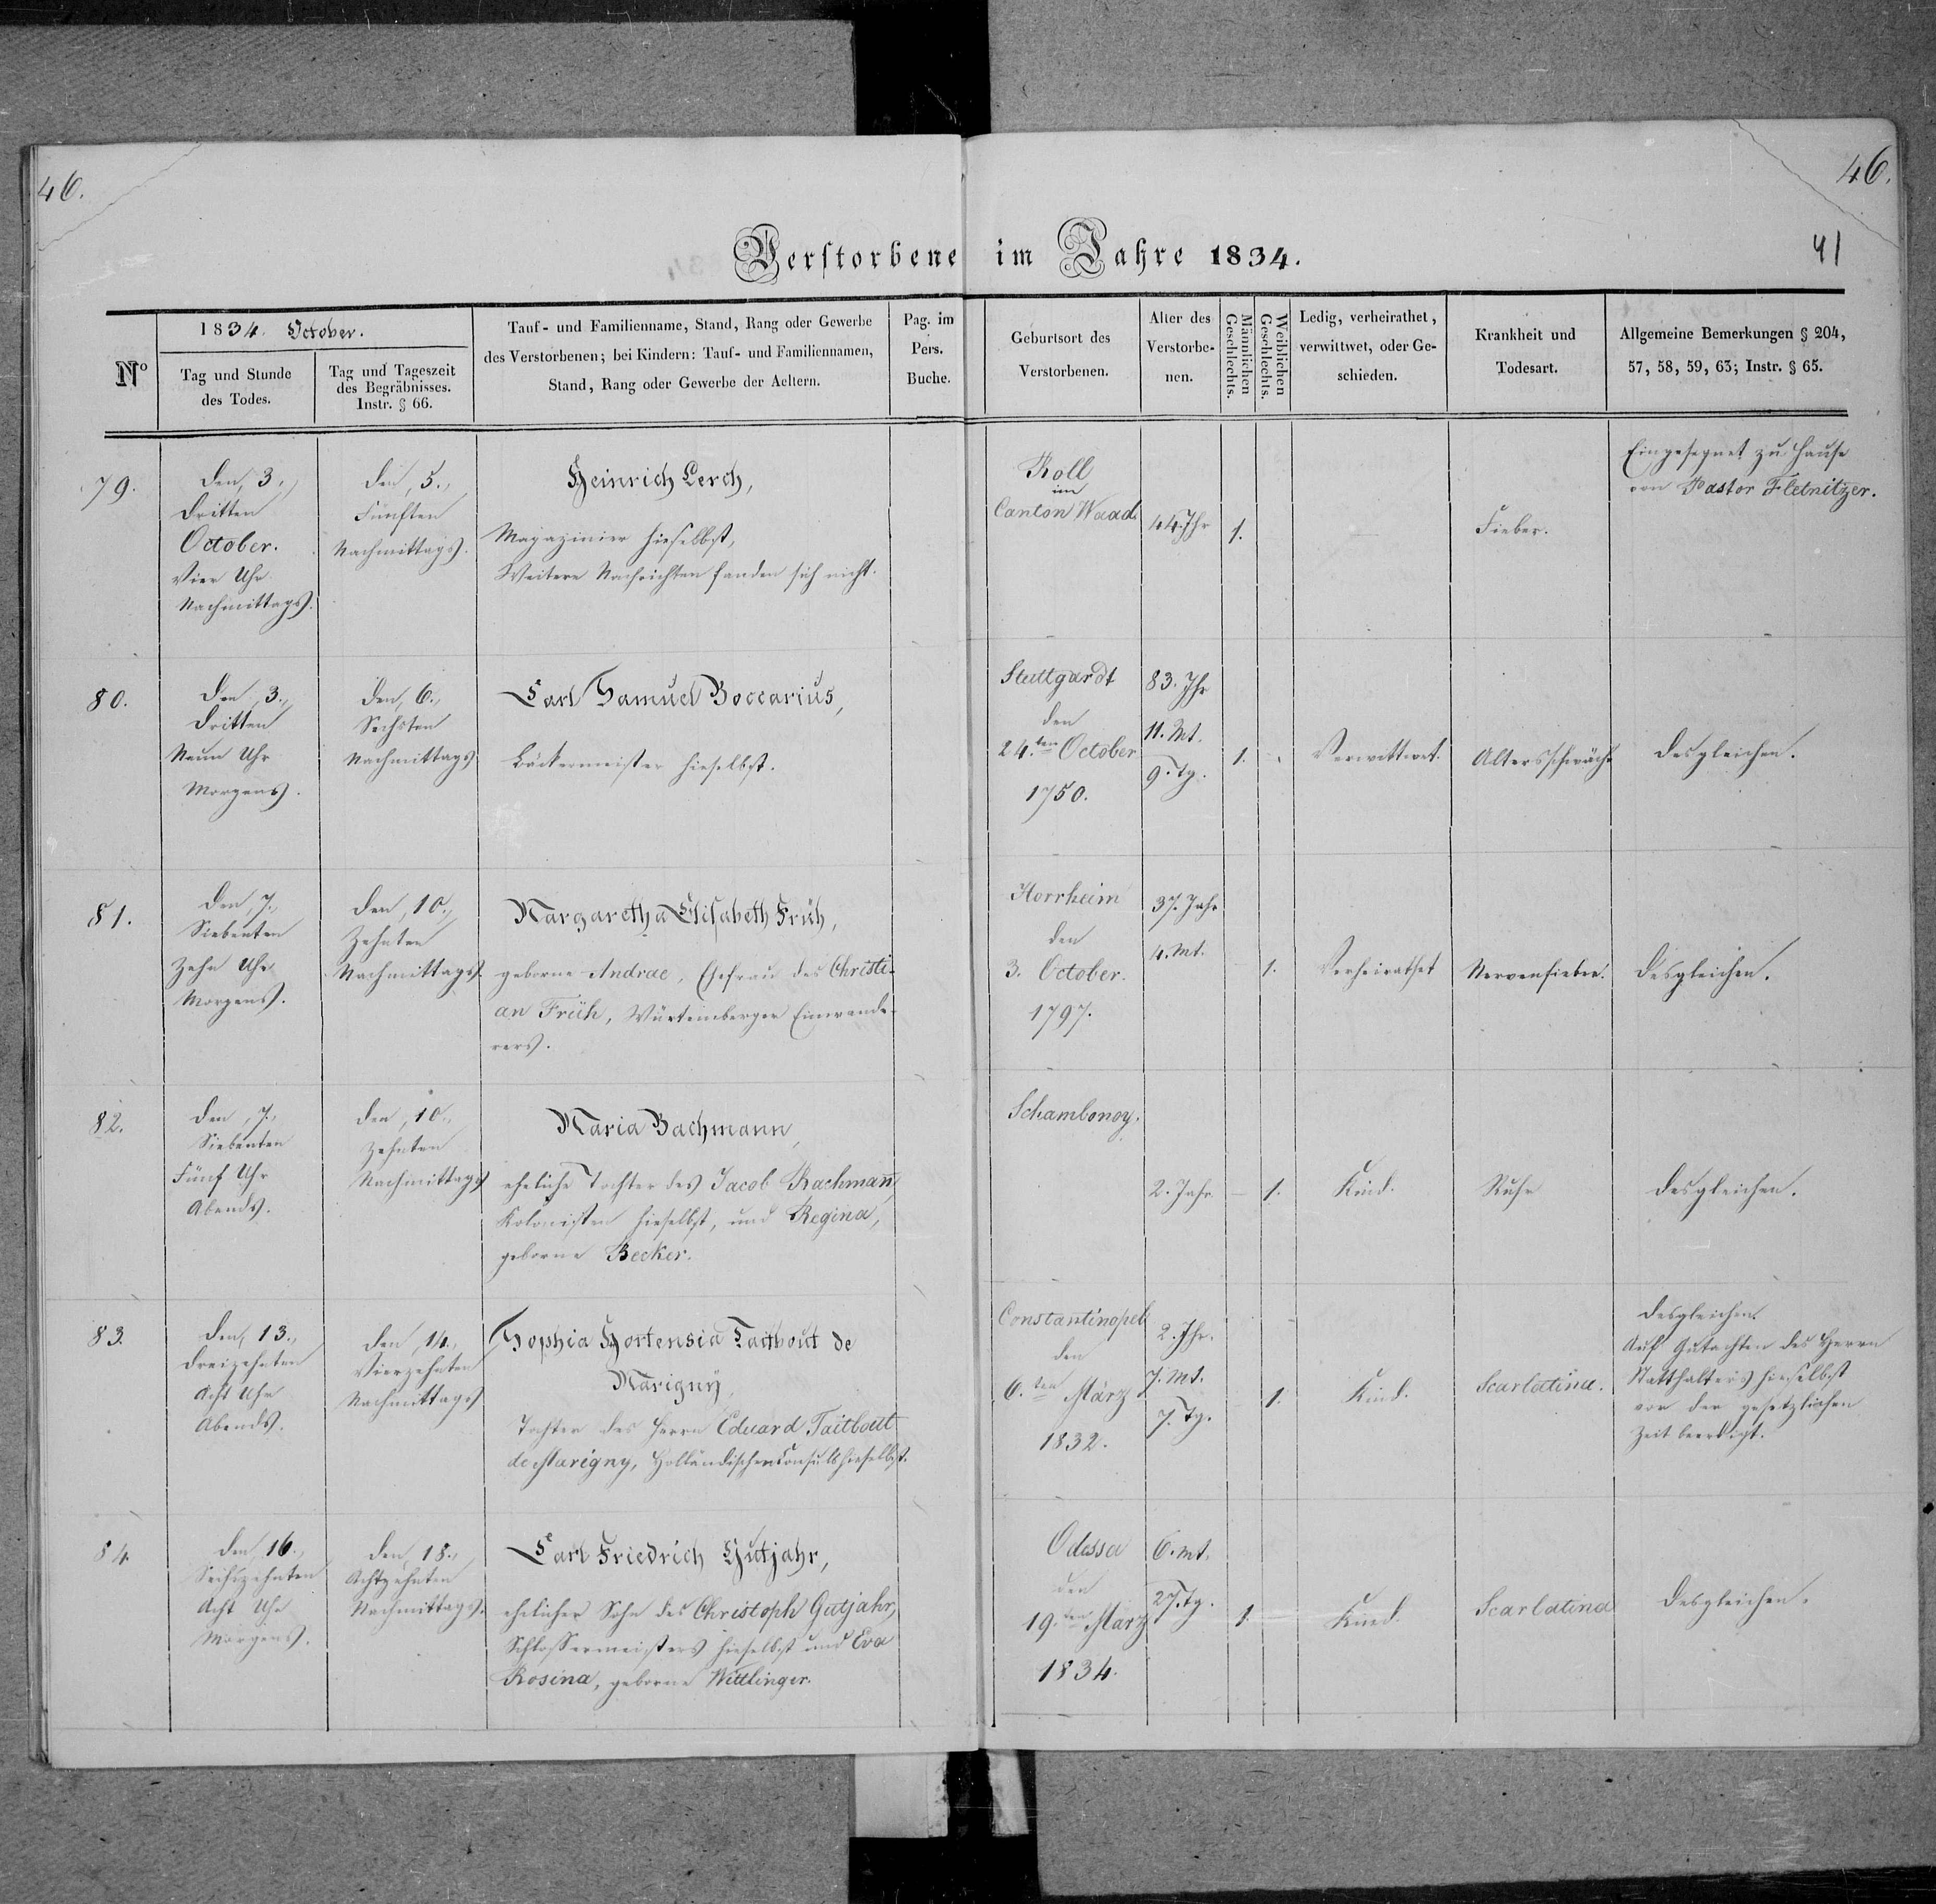 46.
46.
41
Verstorbene im Jahre 1834.
Nº
1834. October.
Tag und Stunde des Todes.
Tag und Tageszeit des Begräbnisses. Instr. § 66.
Tauf- und Familienname, Stand, Rang oder Gewerbe
des Verstorbenen; bei Kindern: Tauf- und Familiennamen,
Stand, Rang oder Gewerbe der Aeltern.
Pag. im Pers. Buche.
Geburtsort des Verstorbenen.
Alter des Verstorbe-nen.
Männlichen Geschlechts.
Weiblichen Geschlechts.
Ledig, verheirathet, verwittwet, oder Ge-schieden.
Krankheit und Todesart.
Allgemeine Bemerkungen § 204, 57, 58, 59, 63; Instr. § 65.
79.
Den, 3.,
Dritten
October.
Vier Uhr
Nachmittags.
Den, 5.,
Fünften
Nachmittags.
Heinrich Lerch,
Magazinier hieselbst,
Weitere Nachrichten fanden sich nicht.
Roll
im
Canton Waad.
44. Jhr
1.
Fieber.
Eingesegnet zu Hause
von Pastor Fletnitzer.
80.
Den, 3.,
Dritten
Neun Uhr
Morgens.
Den, 6.,
Sechsten
Nachmittags
Carl Samuel Boccarius,
Bäckermeister hieselbst.
Stuttgardt
den
24.ten October
1750.
83. Jhr
11. Mt.
9. Tg.
1.
Verwittwet.
Altersschwäche
Desgleichen.
81.
Den, 7.,
Siebenten
Zehn Uhr
Morgens.
Den, 10.,
Zehnten
Nachmittags.
Margaretha Elisabeth Früh,
geborne Andrae, Ehefrau des Christi-
an Früh, Würtemberger Einwande-
rers.
Horrheim
den
3. October.
1797.
37. Jahr
4. Mt.
1.
Verheirathet
Nervenfieber.
Desgleichen.
82.
Den, 7.,
Siebenten
Fünf Uhr
Abends.
Den, 10.,
Zehnten
Nachmittags
Maria Bachmann,
eheliche Tochter des Jacob Bachmañ,
Kolonisten hieselbst, und Regina,
geborne Becker.
Schambonoy.
2. Jahr
1.
Kind.
Ruhr
Desgleichen.
83.
Den, 13.,
Dreizehnten
Acht Uhr
Abends.
Den, 14.,
Vierzehnten
Nachmittags
Sophia Hortensia Taitbout de
Marigny,
Tochter des Herrn Eduard Taitbout
de Marigny, Holländischen Consuls hieselbst.
Constantinopel
den
6.ten März
1832.
2. Jhr.
7. Mt.
7. Tg.
1.
Kind.
Scarlatina.
Desgleichen.
Auf Gutachten des Herrn
Statthalters hieselbst
vor der gesetzlichen
Zeit beerdigt.
84.
Den, 16.,
Sechszehnten
Acht Uhr
Morgens.
Den, 18.,
Achtzehnten
Nachmittags.
Carl Friedrich Gutjahr,
ehelicher Sohn des Christoph Gutjahr,
Schlossermeisters hieselbst und Eva
Rosina, geborne Wittlinger.
Odessa
den
19.ten März
1834.
6. Mt.
27. Tg.
1.
Kind.
Scarlatina
Desgleichen.